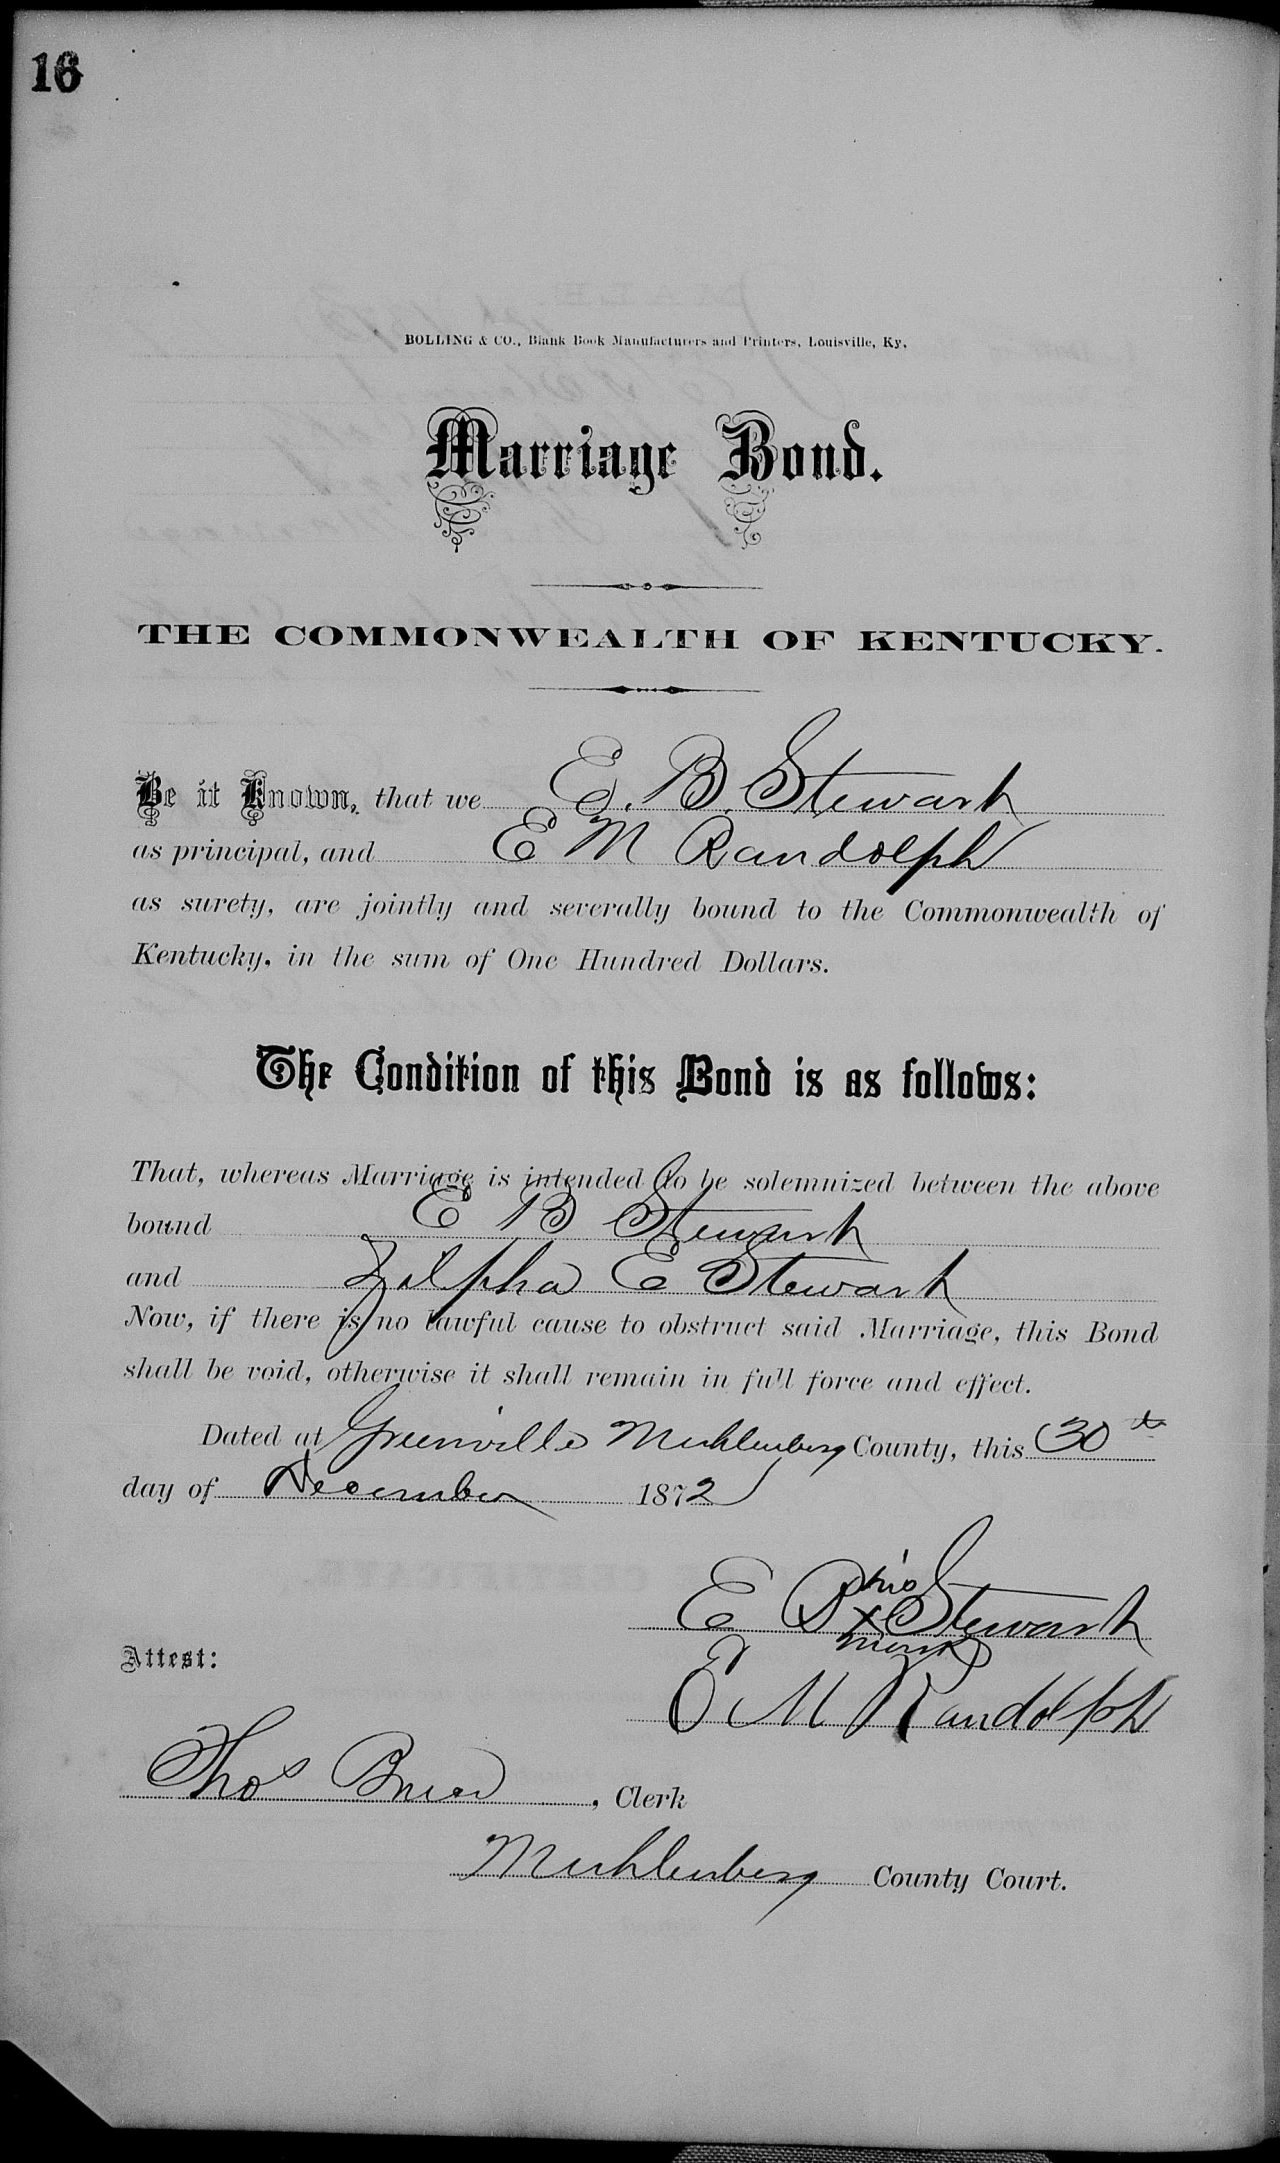 16
BOLLING & CO., Blank Book Manufacturers and Printers, Louisville, Ky.
Marriage Bond.
THE COMMONWEALTH OF KENTUCKY.
Be it Known, that we E. B. Stewart
as principal, and E M Randolph
as surety, are jointly and severally bound to the Commonwealth of
Kentucky, in the sum of One Hundred Dollars.
The Condition of this Bond is as follows:
That, whereas Marriage is intended to be solemnized between the above
bound E B Stewart
and Zilpha E Stewart
Now, if there is no lawful cause to obstruct said Marriage, this Bond
shall be void, otherwise it shall remain in full force and effect.
Dated at Greenville Muhlenberg County, this 30th
day of December 1872
E B his x mark Stewart
Attest:
E M Randolph
Thos , Clerk
Muhlenberg County Court.